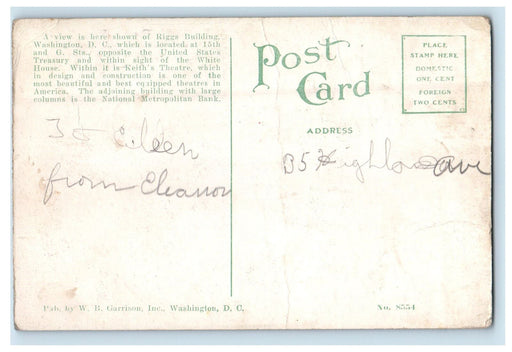 A view is here shown of Riggs Building,
Washington, D. C., which is located at 15th
and G. Sts., opposite the United States
Treasury and within sight of the White
House. Within it is Keith's Theatre, which
in design and construction is one of the
most beautiful and best equipped theatres in
America. The adjoining building with large
columns is the National Metropolitan Bank.
Post
Card
PLACE
STAMP HERE
DOMESTIC
ONE CENT
FOREIGN
TWO CENTS
ADDRESS
Eileen
from Eleanor
35 Ave
Pub. by W. B. Garrison, Inc., Washington, D. C.
No. 8554